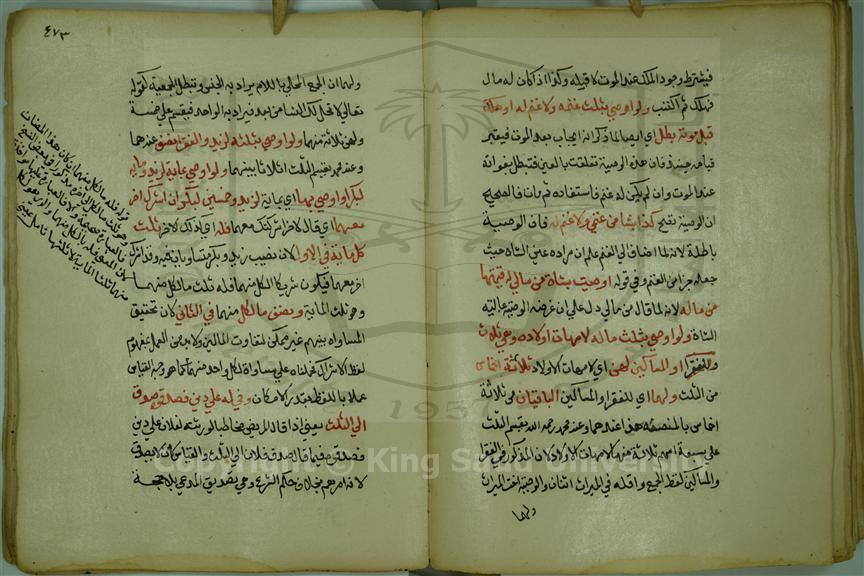 فيشترط وجود الملك عند الموت لا قبله وكذا اذا كان له مال
فهلك ثم اكتسب ولو اوصى بثلث غنمه ولا غنم له او هلك
قبل موته بطل اي ايصا لما ذكرنا انه ايجاب بعد الموت فيعتبر
قيامه حينئذ فان هذه الوصية تعلقت بالعين فتبطل بفواته
عند الموت وان لم يكن له غنم فاستفاده ثم مات فالصحيح
ان الوصية تصح كذا بشاة من غنمي ولا غنم له فان الوصية
باطلة لانه لما اضاف الى الغنم علم ان مراده عين الشاة حيث
جعله جزا من الغنم وفي قوله اوصيت بشاة من مالي له قيمتها
من ماله لانه لما قال من مالي دل على ان غرضه الوصية بمالية
الشاة ولو اوصى بثلث ماله لامهات اولاده وهي ثلاث
وللفقرا او المساكين لهن اي لامهات الاولاد ثلاثة اخماس
من الثلث ولهما اي للفقرا والمساكين الباقيان من ثلاثة
اخماس بالمنصفة هذا عندهما وعند محمد رحمه الله يقسم الثلث
على سبعة اسهم ثلاثة منها لامهات الاولاد لان المذكور في الفقرا
والمساكين لفظ الجمع واقله في الميراث اثنان والوصية اخت الميراث
ولهما
٤٧٣
ولهما ان الجمع المحلى باللام يراد به الجنس وتبطل الجمعية كقوله
تعالى لا تحل لك النسا من بعد فيراد به الواحد فيقسم على خمسة
ولهن ثلاثة منها ولو اوصى بثلثه لزيد والفقرا نصف عندهما
وعند محمد يقسم الثلث اثلاثا بينهما ولو اوصى بماية لزيد وماية
لبكر او اوصى بها اي بماية لزيد وخمسين لبكر وان اشرك اخر
معهما اي قال لاخر اشركتك معهما فله اي لذلك الاخر ثلث
كل ماية في الاول لان نصيب زيد وبكر متساويان فيه وقد اشرك
اخر معهما فيكون شريكا لكل منهما فله ثلث ما لكل منهما
وهو ثلث الماية ونصف ما لكل منهما في الثاني لان تحقيق
المساواة بينهم غير ممكن لتفاوت المالين ولا بد من العمل بمفهوم
لفظ الاشراك فحملناه على مساواة لكل واحد منهما كما هو وجه القياس
عملا باللفظ بقدر الامكان وفي له علي دين فصدقوه صدق
الى الثلث يعني اذا قال المريض مخاطبا لورثته لفلان علي دين
فصدقوه فيما قال صدق فلان الى الثلث والقياس ان لا يصدق
لانه امرهم بخلاف حكم الشرع وهي تصديق المدعي بلا حجة
Copyright © King Saud University
1957